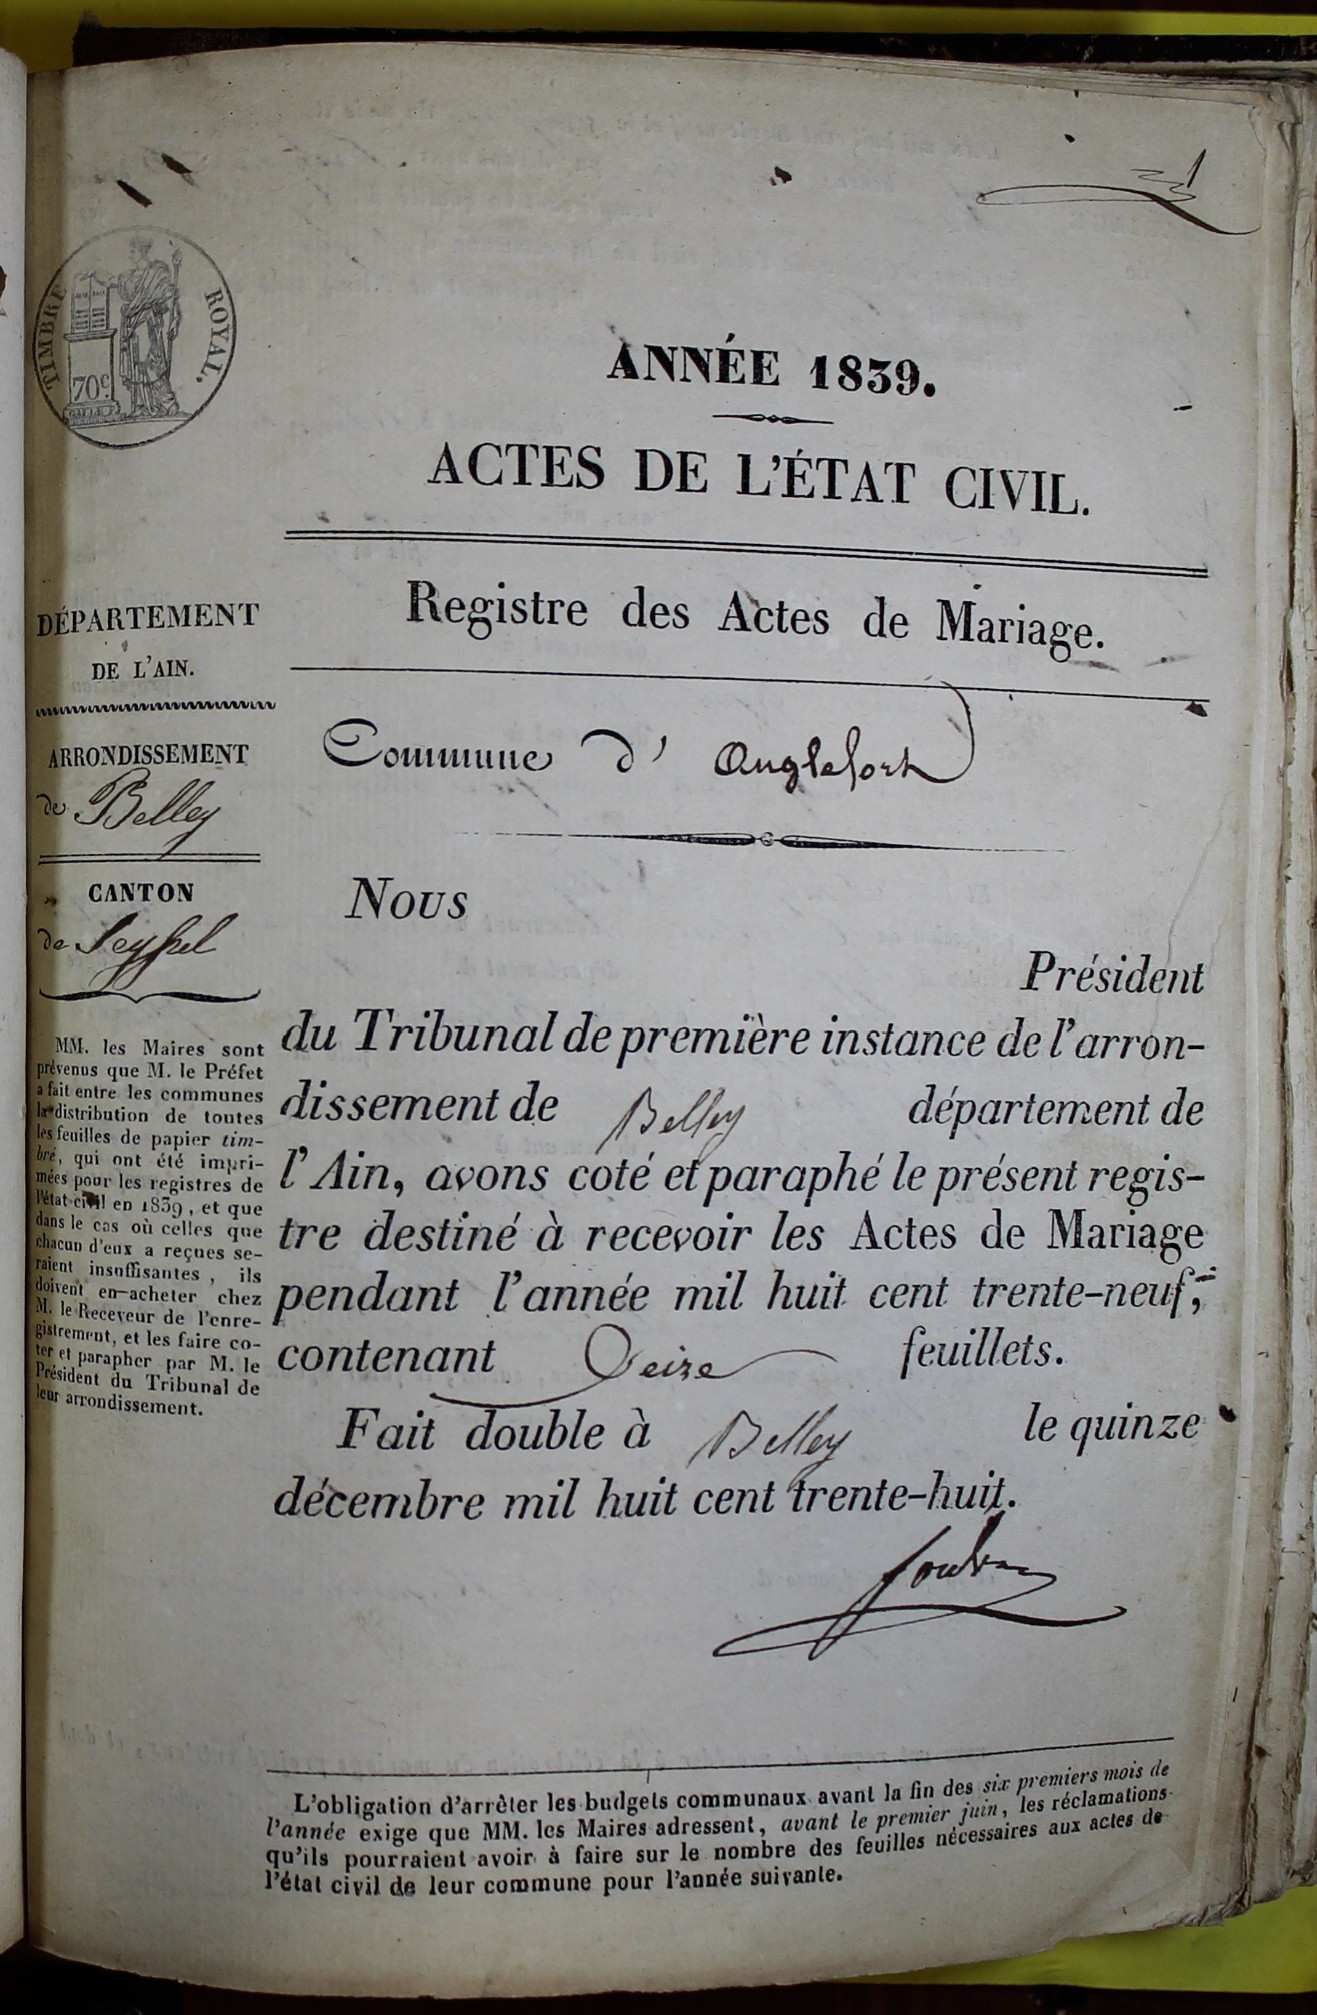 1
TIMBRE ROYAL.
70c.
ANNÉE 1839.
ACTES DE L'ÉTAT CIVIL.
Registre des Actes de Mariage.
DÉPARTEMENT
DE L'AIN.
ARRONDISSEMENT
de Belley
CANTON
de Seyssel
MM. les Maires sont
prévenus que M. le Préfet
a fait entre les communes
la distribution de toutes
les feuilles de papier tim-
bré, qui ont été impri-
mées pour les registres de
l'état civil en 1839, et que
dans le cas où celles que
chacun d'eux a reçues se-
raient insuffisantes, ils
doivent en acheter chez
M. le Receveur de l'enre-
gistrement, et les faire co-
ter et parapher par M. le
Président du Tribunal de
leur arrondissement.
Commune d' Anglefort
Nous
Président
du Tribunal de première instance de l'arron-
dissement de Belley département de
l'Ain, avons coté et paraphé le présent regis-
tre destiné à recevoir les Actes de Mariage
pendant l'année mil huit cent trente-neuf,
contenant Seize feuillets.
Fait double à Belley le quinze
décembre mil huit cent trente-huit.
L'obligation d'arrêter les budgets communaux avant la fin des six premiers mois de
l'année exige que MM. les Maires adressent, avant le premier juin, les réclamations
qu'ils pourraient avoir à faire sur le nombre des feuilles nécessaires aux actes de
l'état civil de leur commune pour l'année suivante.